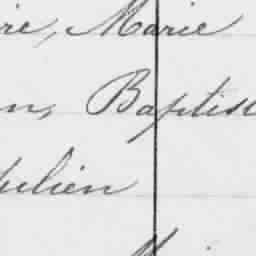 re, Marie
n, Baptist
Julien